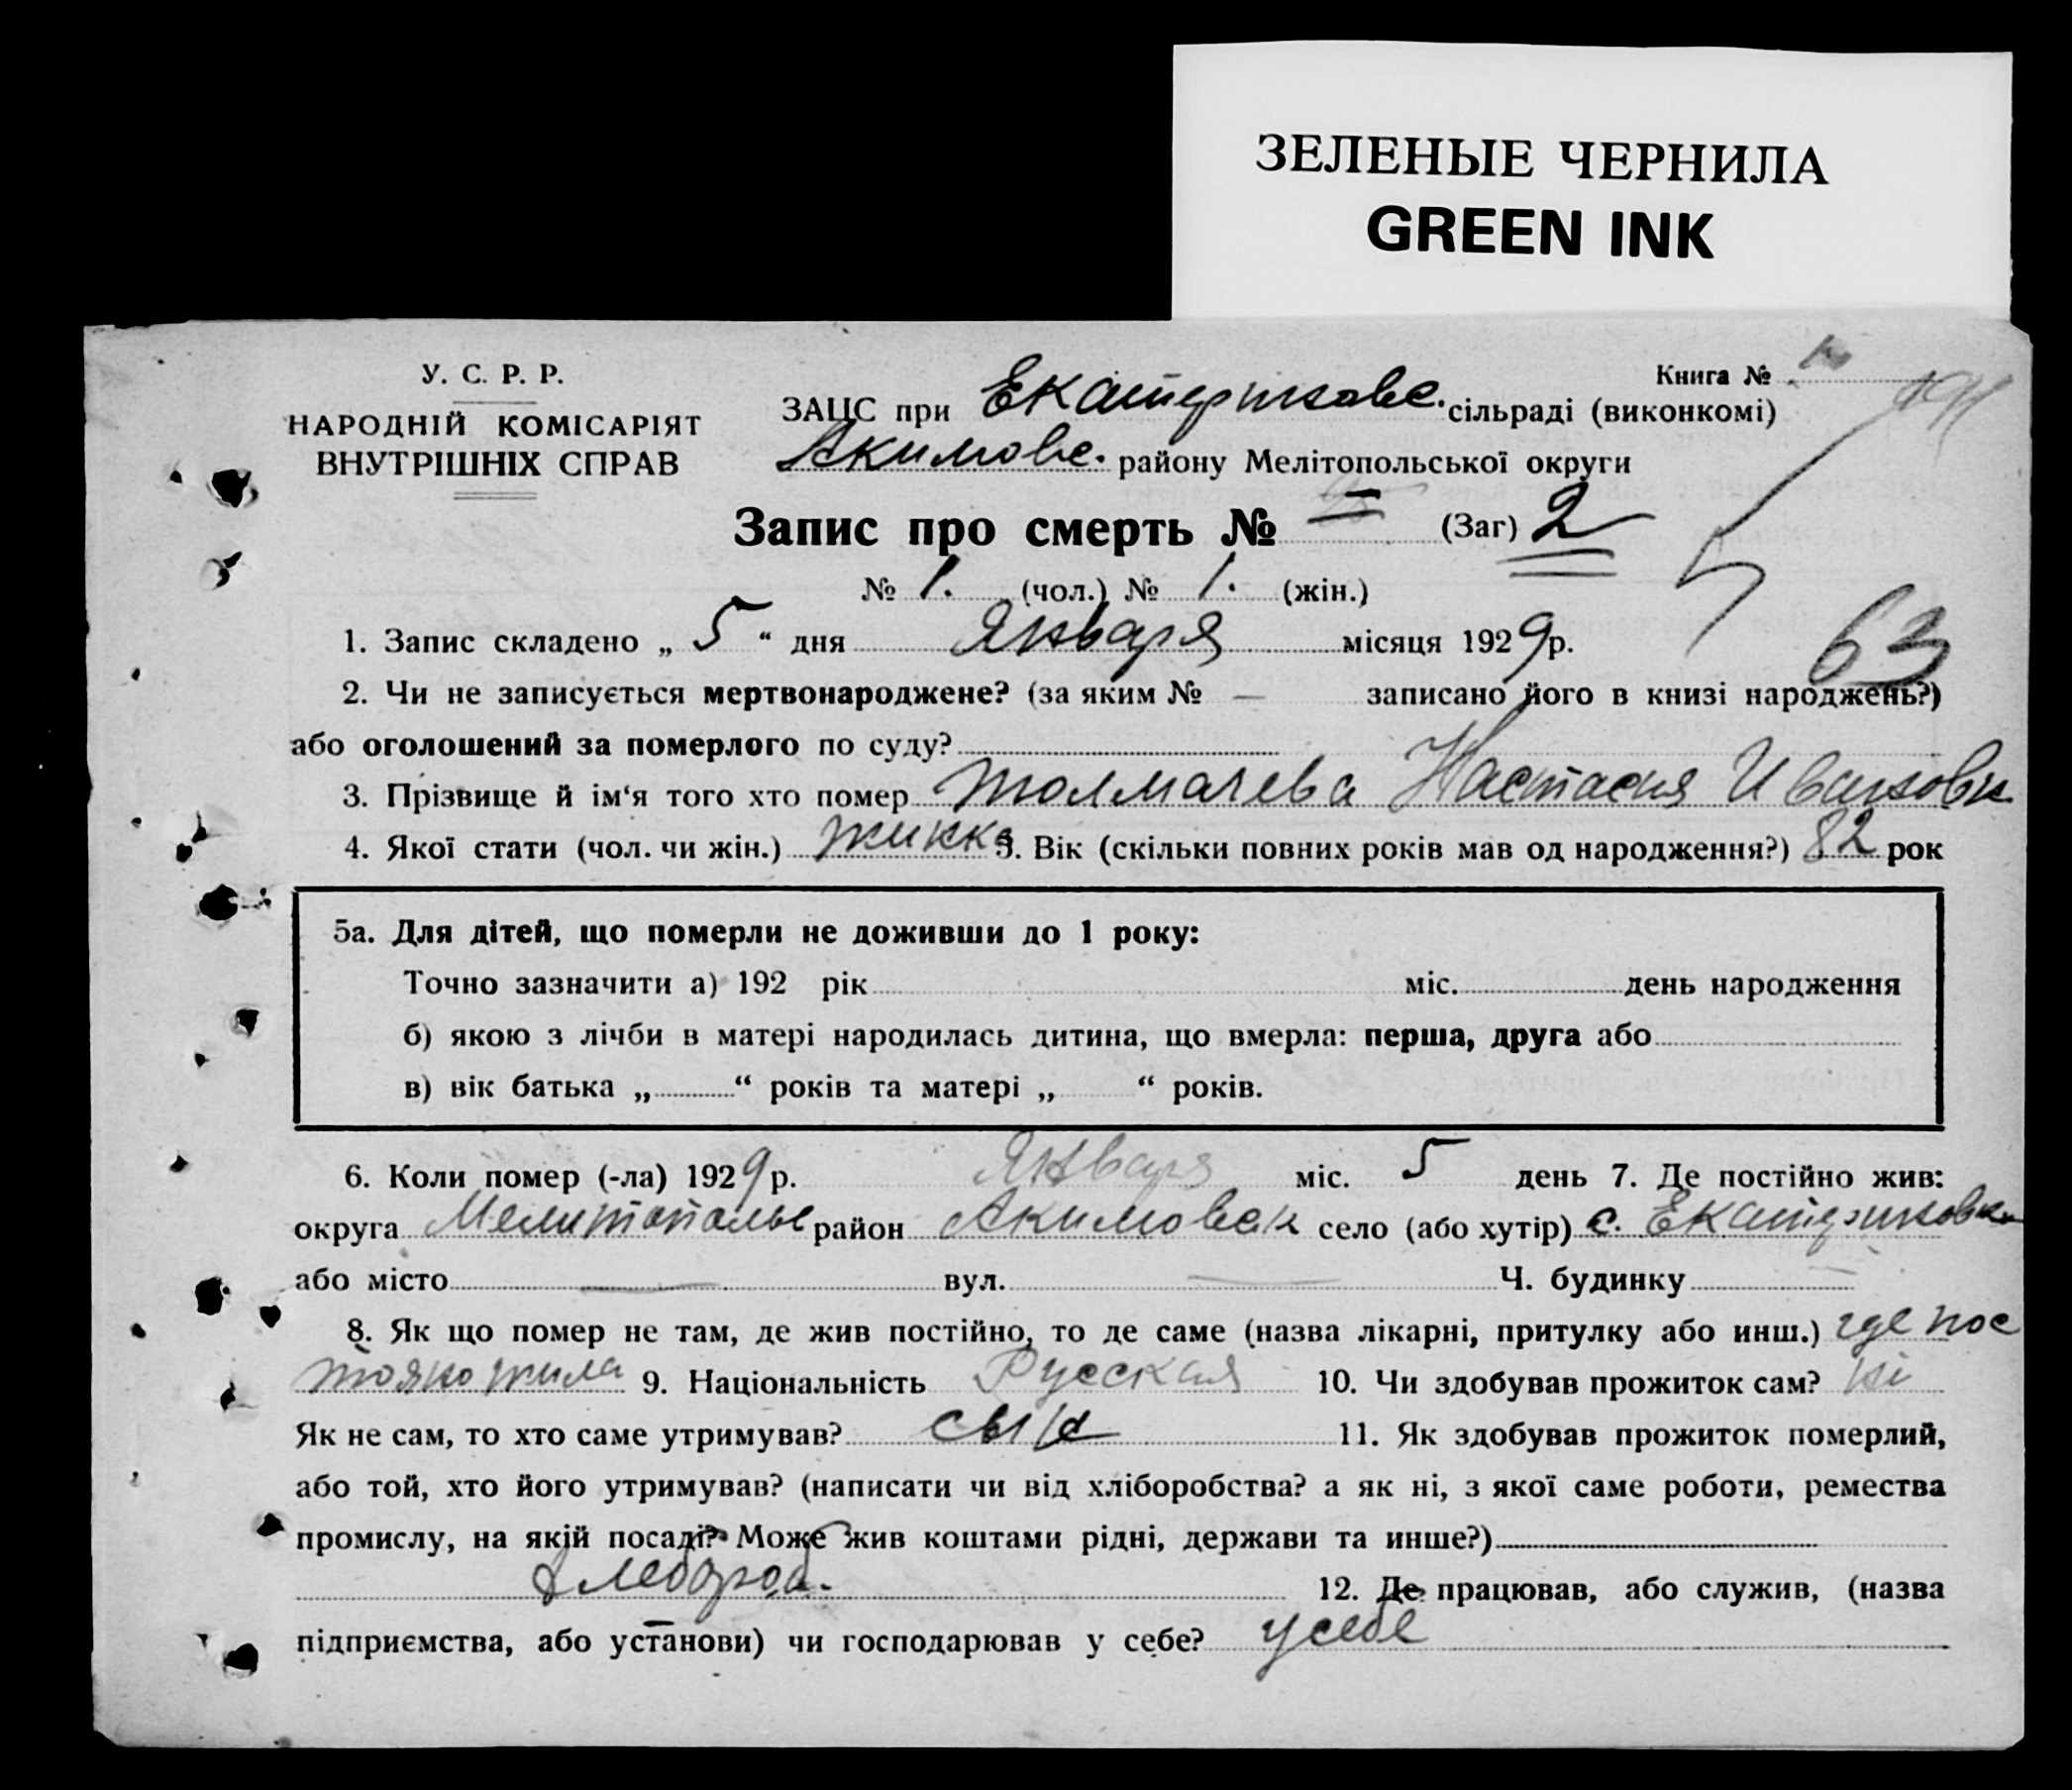 ЗЕЛЕНЫЕ ЧЕРНИЛА
GREEN INK
У. С. Р. Р.
НАРОДНІЙ КОМІСАРІЯТ
ВНУТРІШНІХ СПРАВ
Книга №
ЗАЦС при Екатериновс. сільраді (виконкомі)
Акимовс. району Мелітопольської округи
Запис про смерть № (Заг) 2
№ 1. (чол.) № 1. (жін.)
63
1. Запис складено „ 5 “ дня Января місяця 1929р.
2. Чи не записується мертвонароджене? (за яким № — записано його в книзі народжень?)
або оголошений за померлого по суду?
3. Прізвище й ім‘я того хто помер Толмачева Настасия Ивановн
4. Якої стати (чол. чи жін.) жинка 5. Вік (скільки повних років мав од народження?) 82 рок
5а. Для дітей, що померли не доживши до 1 року:
Точно зазначити а) 192 рік міс. день народження
б) якою з лічби в матері народилась дитина, що вмерла: перша, друга або
в) вік батька „ “ років та матері „ “ років.
6. Коли помер (-ла) 1929р. Января міс. 5 день 7. Де постійно жив:
округа Мелитопольс район Акимовск село (або хутір) с. Екатериновка
або місто — вул. — Ч. будинку
8. Як що помер не там, де жив постійно, то де саме (назва лікарні, притулку або инш.) где пос
тояно жила 9. Національність Русская 10. Чи здобував прожиток сам? ні
Як не сам, то хто саме утримував? сын 11. Як здобував прожиток померлий,
або той, хто його утримував? (написати чи від хліборобства? а як ні, з якої саме роботи, ремества
промислу, на якій посаді? Може жив коштами рідні, держави та инше?)
хлебороб. 12. Де працював, або служив, (назва
підприємства, або установи) чи господарював у себе? у себе